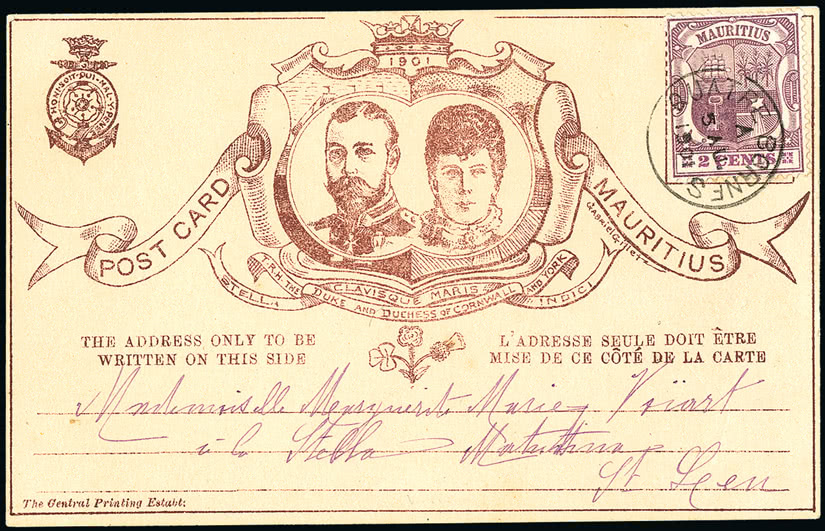 HONI·SOIT·QUI·MAL·Y·PENSE
1901
MAURITIUS
2 CENTS
QUATRE-BORNES
POST CARD
MAURITIUS
STELLA CLAVISQUE MARIS INDICI
T.R.H. THE DUKE AND DUCHESS OF CORNWALL AND YORK
THE ADDRESS ONLY TO BE
WRITTEN ON THIS SIDE
L'ADRESSE SEULE DOIT ÊTRE
MISE DE CE CÔTÉ DE LA CARTE
Mademoiselle Marguerite Marie
à la Stella Matutina
St Leu
The Central Printing Establt: